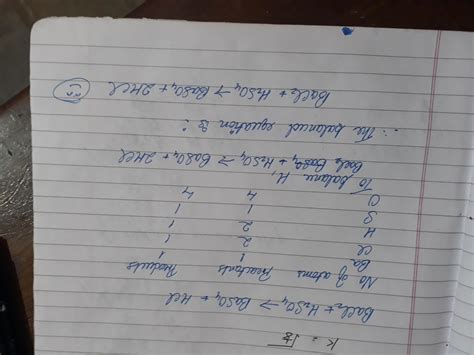 BaCl₂ + H₂SO₄ → BaSO₄ + HCl
No of atoms Reactants Products
Ba 1 1
Cl 2 1
H 2 1
S 1 1
O 4 4
To balance H,
BaCl₂ + H₂SO₄ → BaSO₄ + 2HCl
∴ The balanced equation is:
BaCl₂ + H₂SO₄ → BaSO₄ + 2HCl